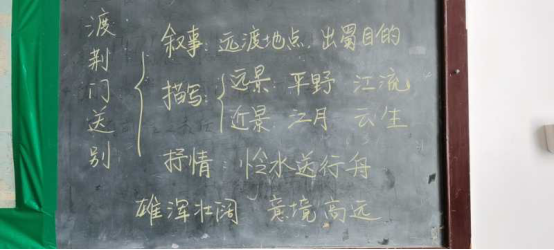 渡荆门送别
叙事：远渡地点 出蜀目的
描写：
远景 平野 江流
近景 江月 云生
抒情：怜水送行舟
雄浑壮阔 意境高远